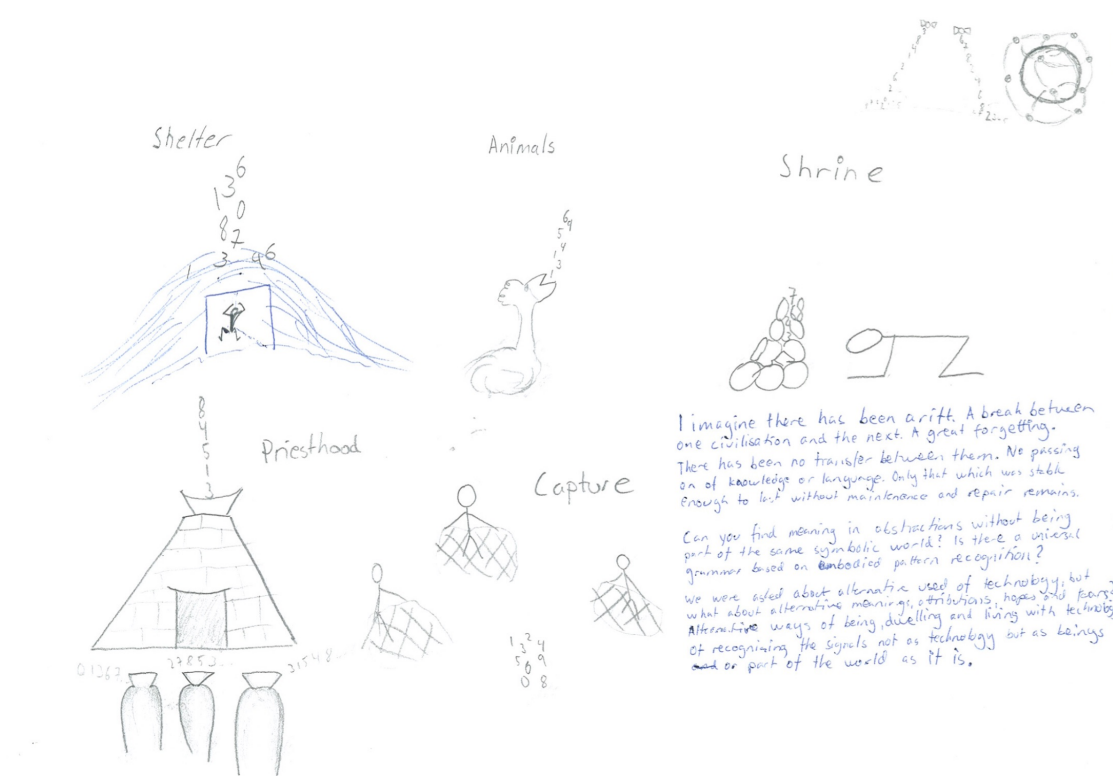 Shelter
6
3
1
0
8
7
1 3 9 6
Animals
6 9
5
4
1
3
Shrine
7
8
4
5
1
3
Priesthood
Capture
0.1362
27853
31548
3 2 4
5 0 9
0 8
I imagine there has been a rift. A break between
one civilisation and the next. A great forgetting.
There has been no transfer between them. No passing
on of knowledge or language. Only that which was stable
enough to last without maintenence and repair remains.
Can you find meaning in abstractions without being
part of the same symbolic world? Is there a universal
grammar based on embodied pattern recognition?
We were asked about alternative used of technology, but
what about alternative meanings, attributions, hopes and fears?
Alternative ways of being, dwelling and living with technology
Of recognising the signals not as technology but as beings
or part of the world as it is.